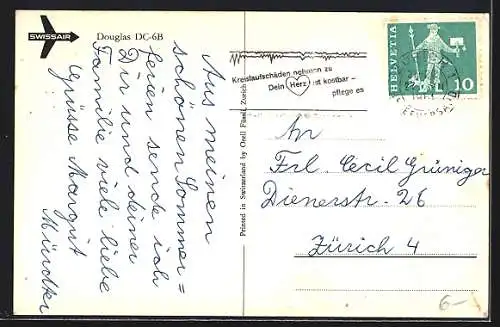 SWISSAIR
Douglas DC-6B
Aus meinen
schönen Sommer=
ferien sende ich
Dir und deiner
Familie viele liebe
Grüsse Margrit
Printed in Switzerland by Orell Füssli Zürich
Kreislaufschäden nehmen zu
Dein Herz ist kostbar –
pflege es
HELVETIA
10
An
Frl. Cecil Grüniger
Dienerstr. 26
Zürich 4
6–